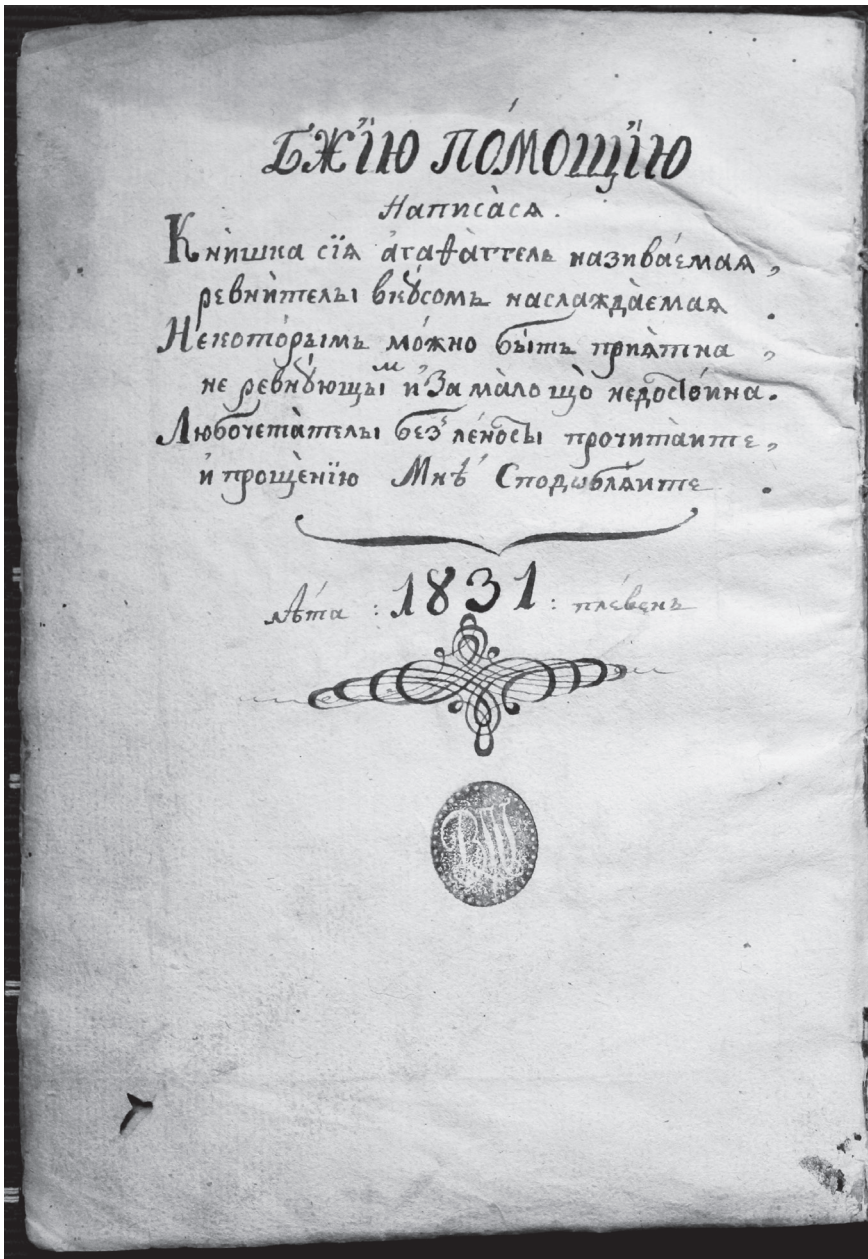 БЖ҃їю по́мощїю
Написа̀сѧ.
Кни̑шка сїѧ а҆гаѳа̀ггель називáемаѧ,
ревни̑телы вкꙋ́сомь наслажда̀емаѧ.
Некото́рымь мо́жно бы́ть приѧ̀тна,
не ревнꙋ́ющым и҆ за ма̀ло що̀ недосто́ина.
Любочета̀телы без̾ ле́ности прочита̀ите,
и҆ проще́нїю Мнѣ̀ Сподѡблѧ̀ите.
лѣ́та : 1831 : пле́венъ